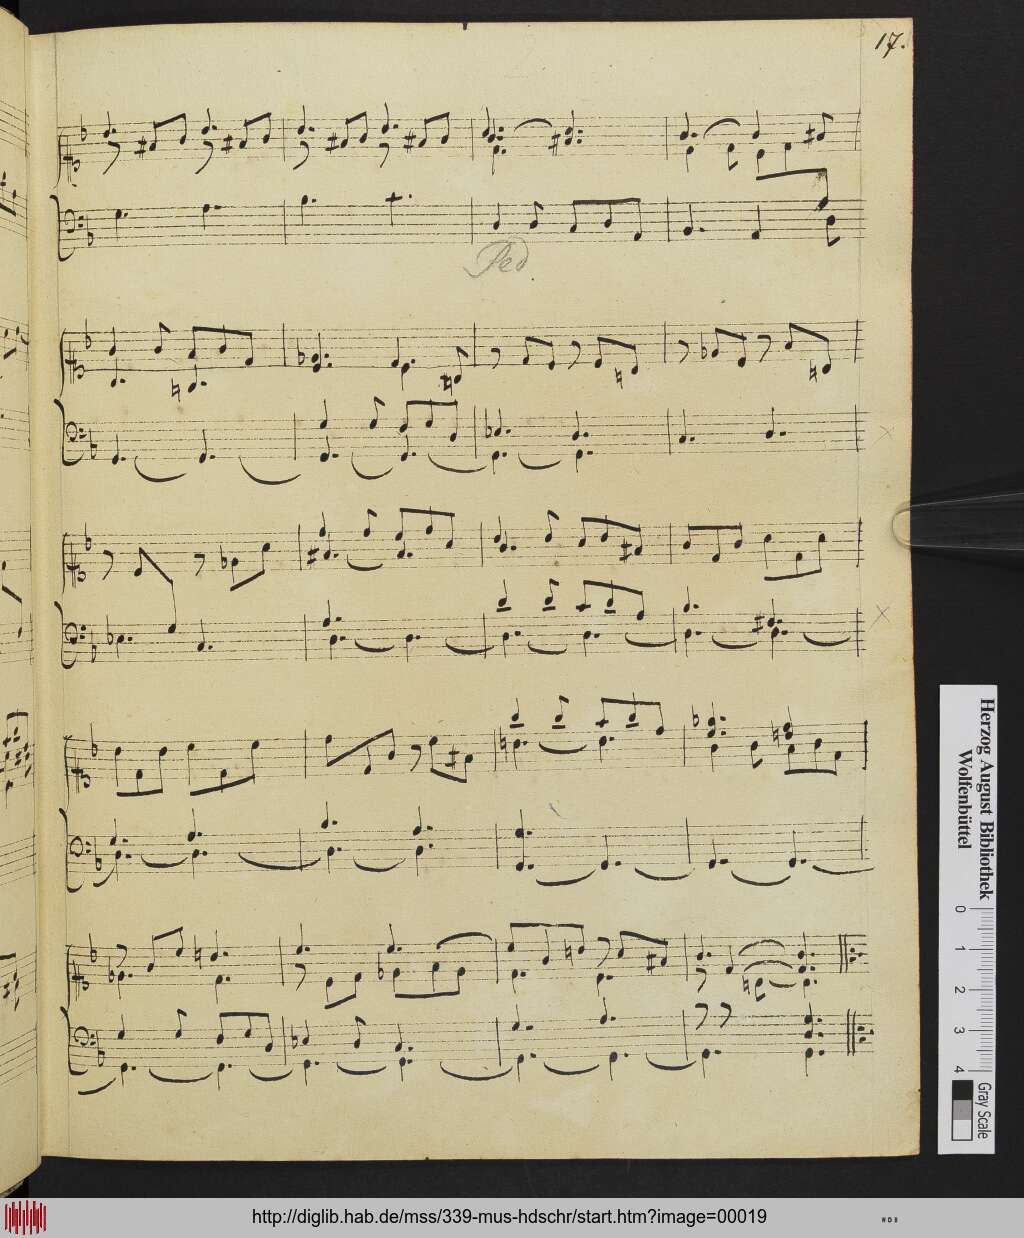 17.
Ped.
Herzog August Bibliothek
Wolfenbüttel
0 1 2 3 4
Gray Scale
http://diglib.hab.de/mss/339-mus-hdschr/start.htm?image=00019